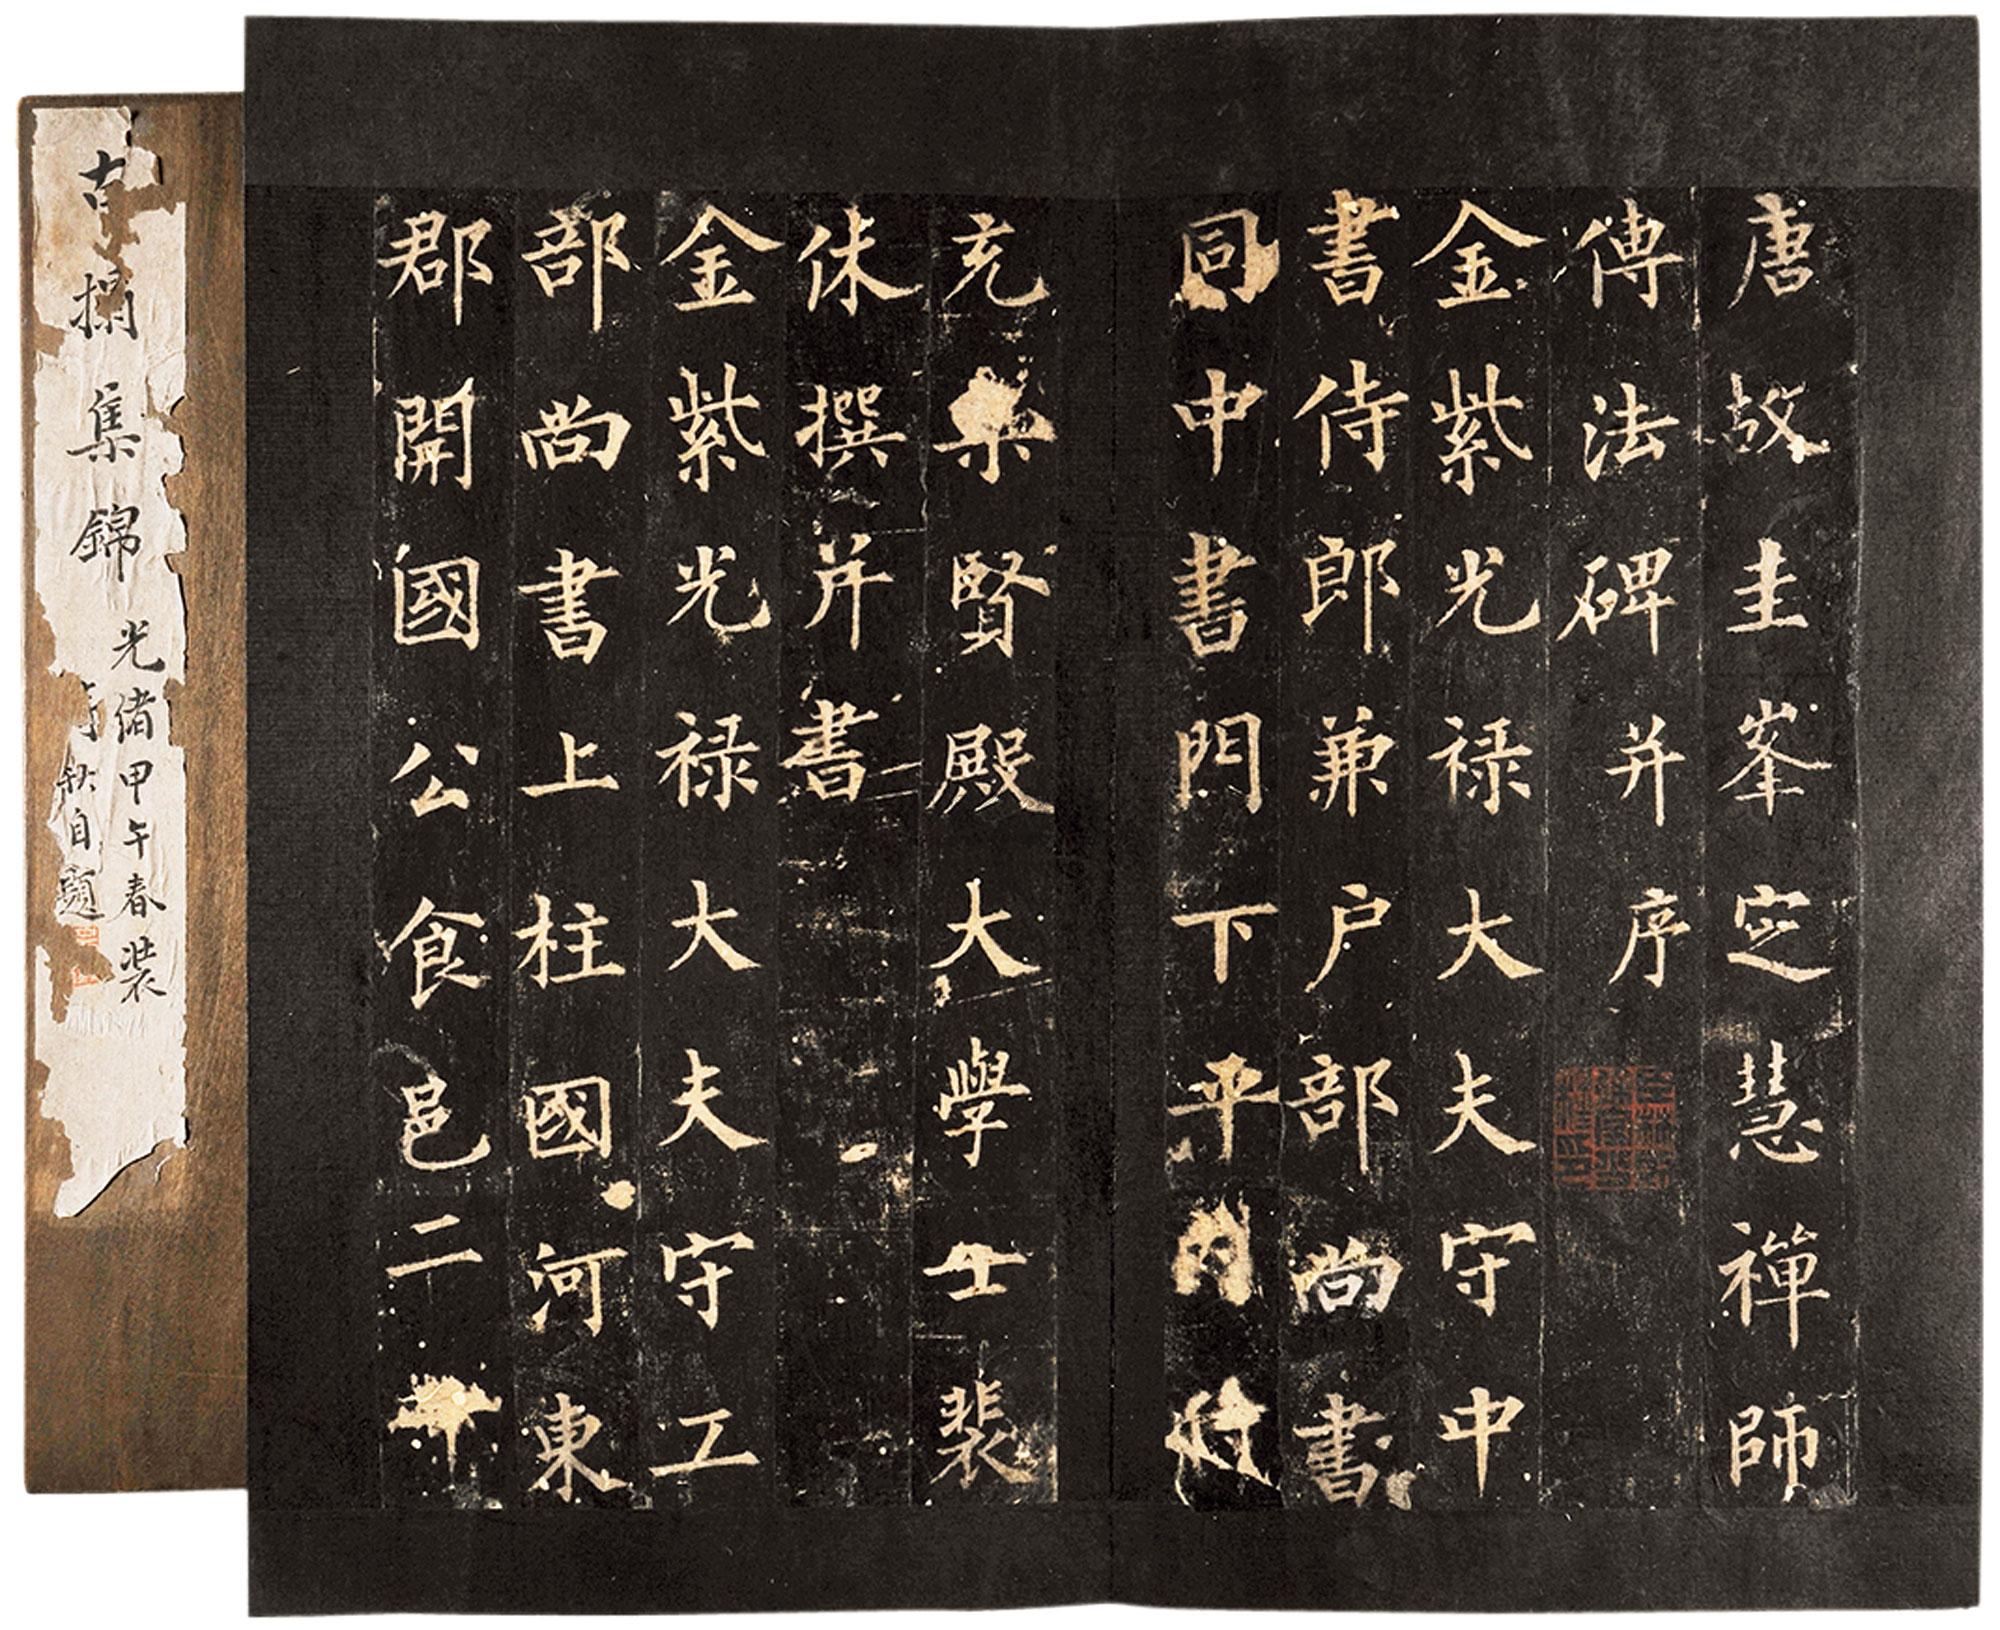 唐故圭峯定慧禪師
傳法碑并序
金紫光禄大夫守中
書侍郎兼户部尚書
同中書門下平
充集賢殿大學士裴
休撰并書
金紫光禄大夫守工
部尚書上柱國河東
郡開國公食邑二
古搨集錦
光緒甲午春裝
秋自題